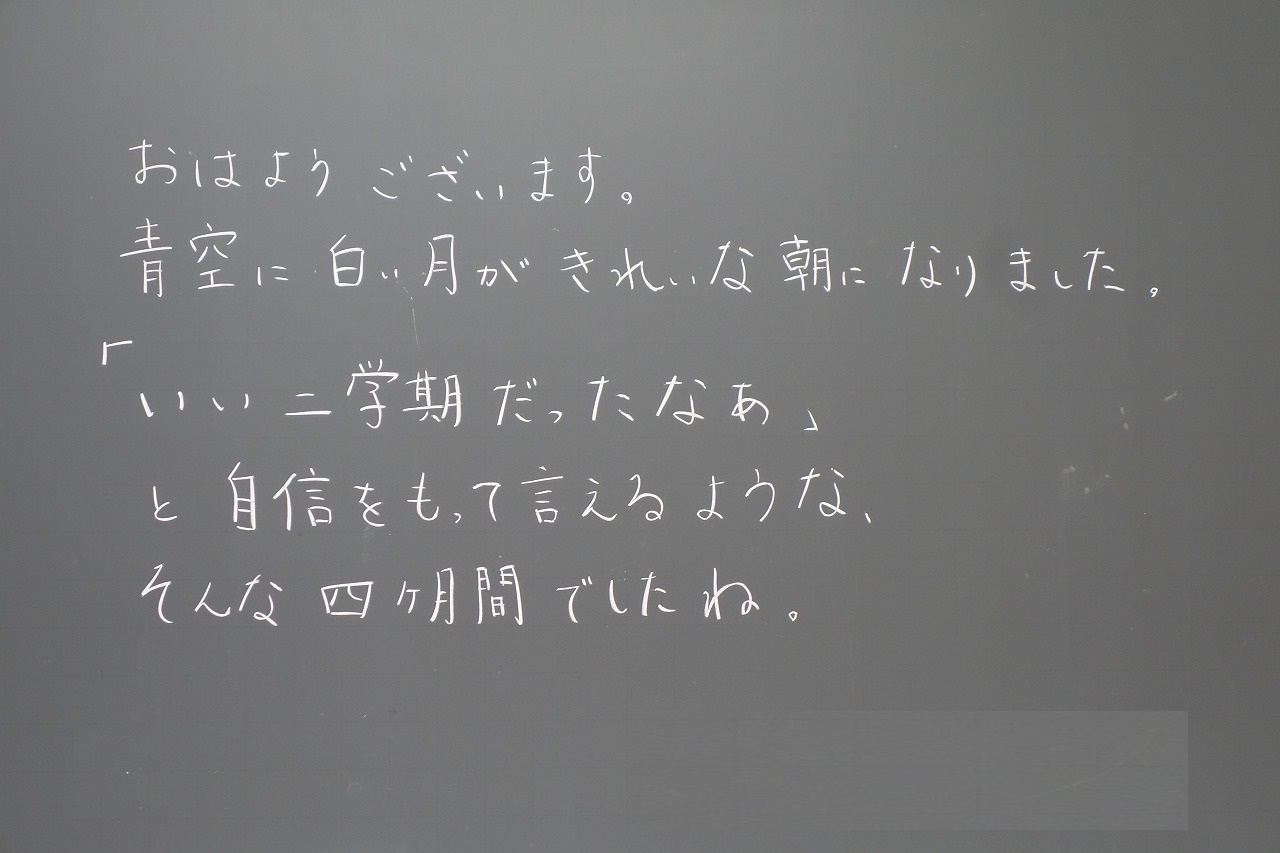 おはようございます。
青空に白い月がきれいな朝になりました。
「いい二学期だったなぁ」
と自信をもって言えるような、
そんな四ケ月間でしたね。